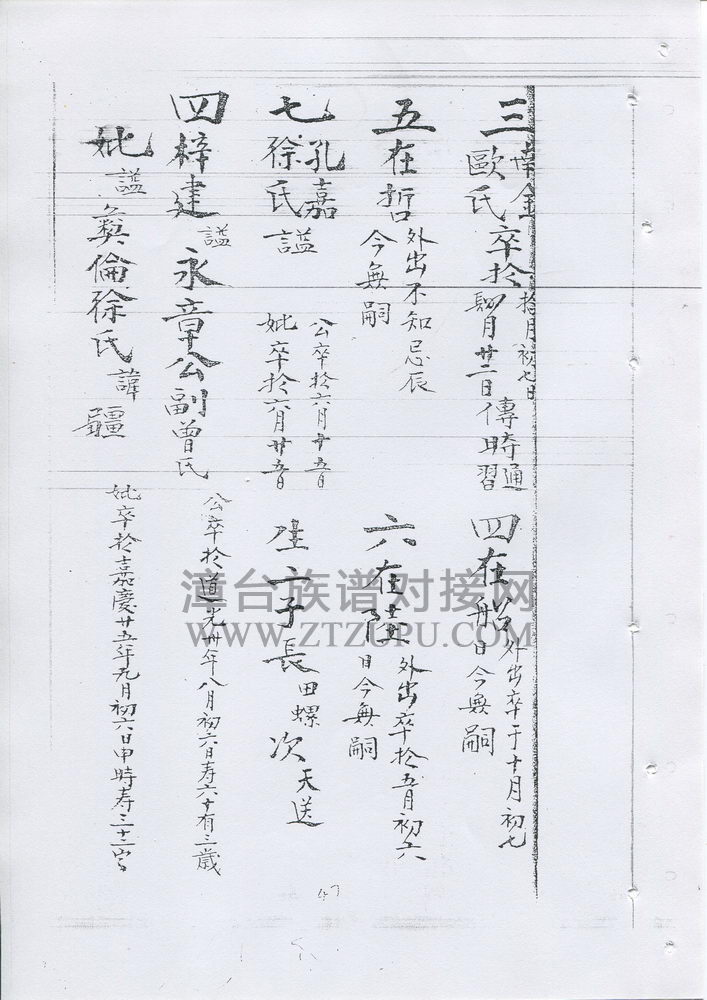 三
金 卒於拾月初七日
歐氏 月廿二日 傳 通習
四 在 外出卒于十月初七
日今無嗣
五 在哲 外出不知忌辰
今無嗣
六 在陸 外出卒於五月初六
日今無嗣
七 孔嘉 公卒於六月廿五日
徐氏 謚 妣卒於六月廿五日
生二子長田螺次天送
四 梓建 謚 永章公副曾氏 公卒於道光卅年八月初六日寿六十有三歲
妣 謚 彝倫徐氏 諱 疆 妣卒於嘉慶廿五年九月初六日申時寿三十三
漳台族谱对接网
WWW.ZTZUPU.COM
47